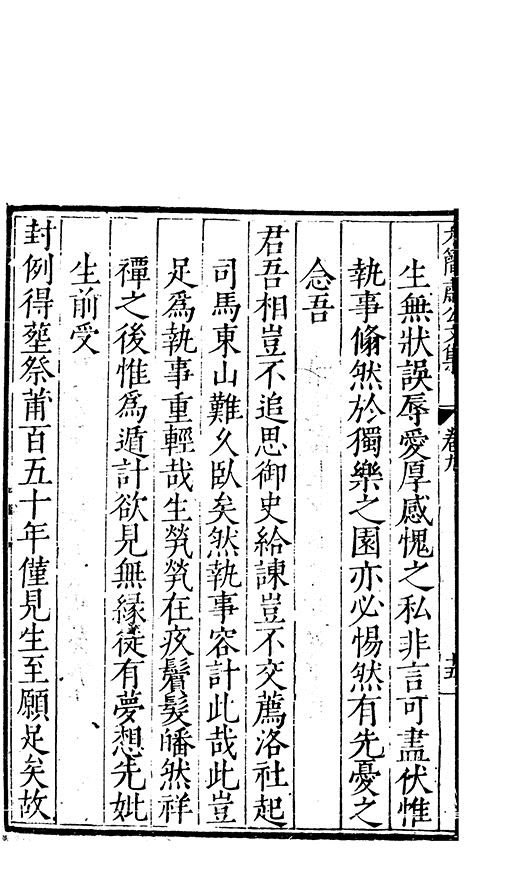 生無狀誤辱愛厚感愧之私非言可盡伏惟
執事翛然於獨樂之園亦必惕然有先憂之
念吾
君吾相豈不追思御史給諫豈不交薦洛社起
司馬東山難久臥矣然執事容計此哉此豈
足為執事重輕哉生煢煢在疚鬢髮皤然祥
禫之後惟為遁計欲見無緣徒有夢想先妣
生前受
封例得塋祭莆百五十年僅見生至願足矣故